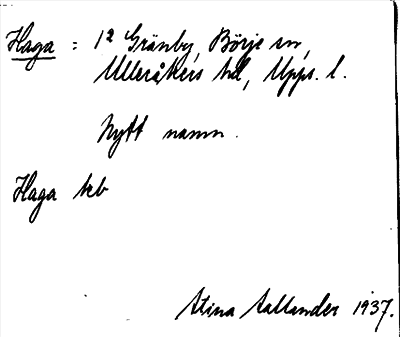 Haga : 1² Gränby, Börje sn,
Ulleråkers hd, Upps. l.
Nytt namn.
Haga hcb
Stina Aallander 1937.